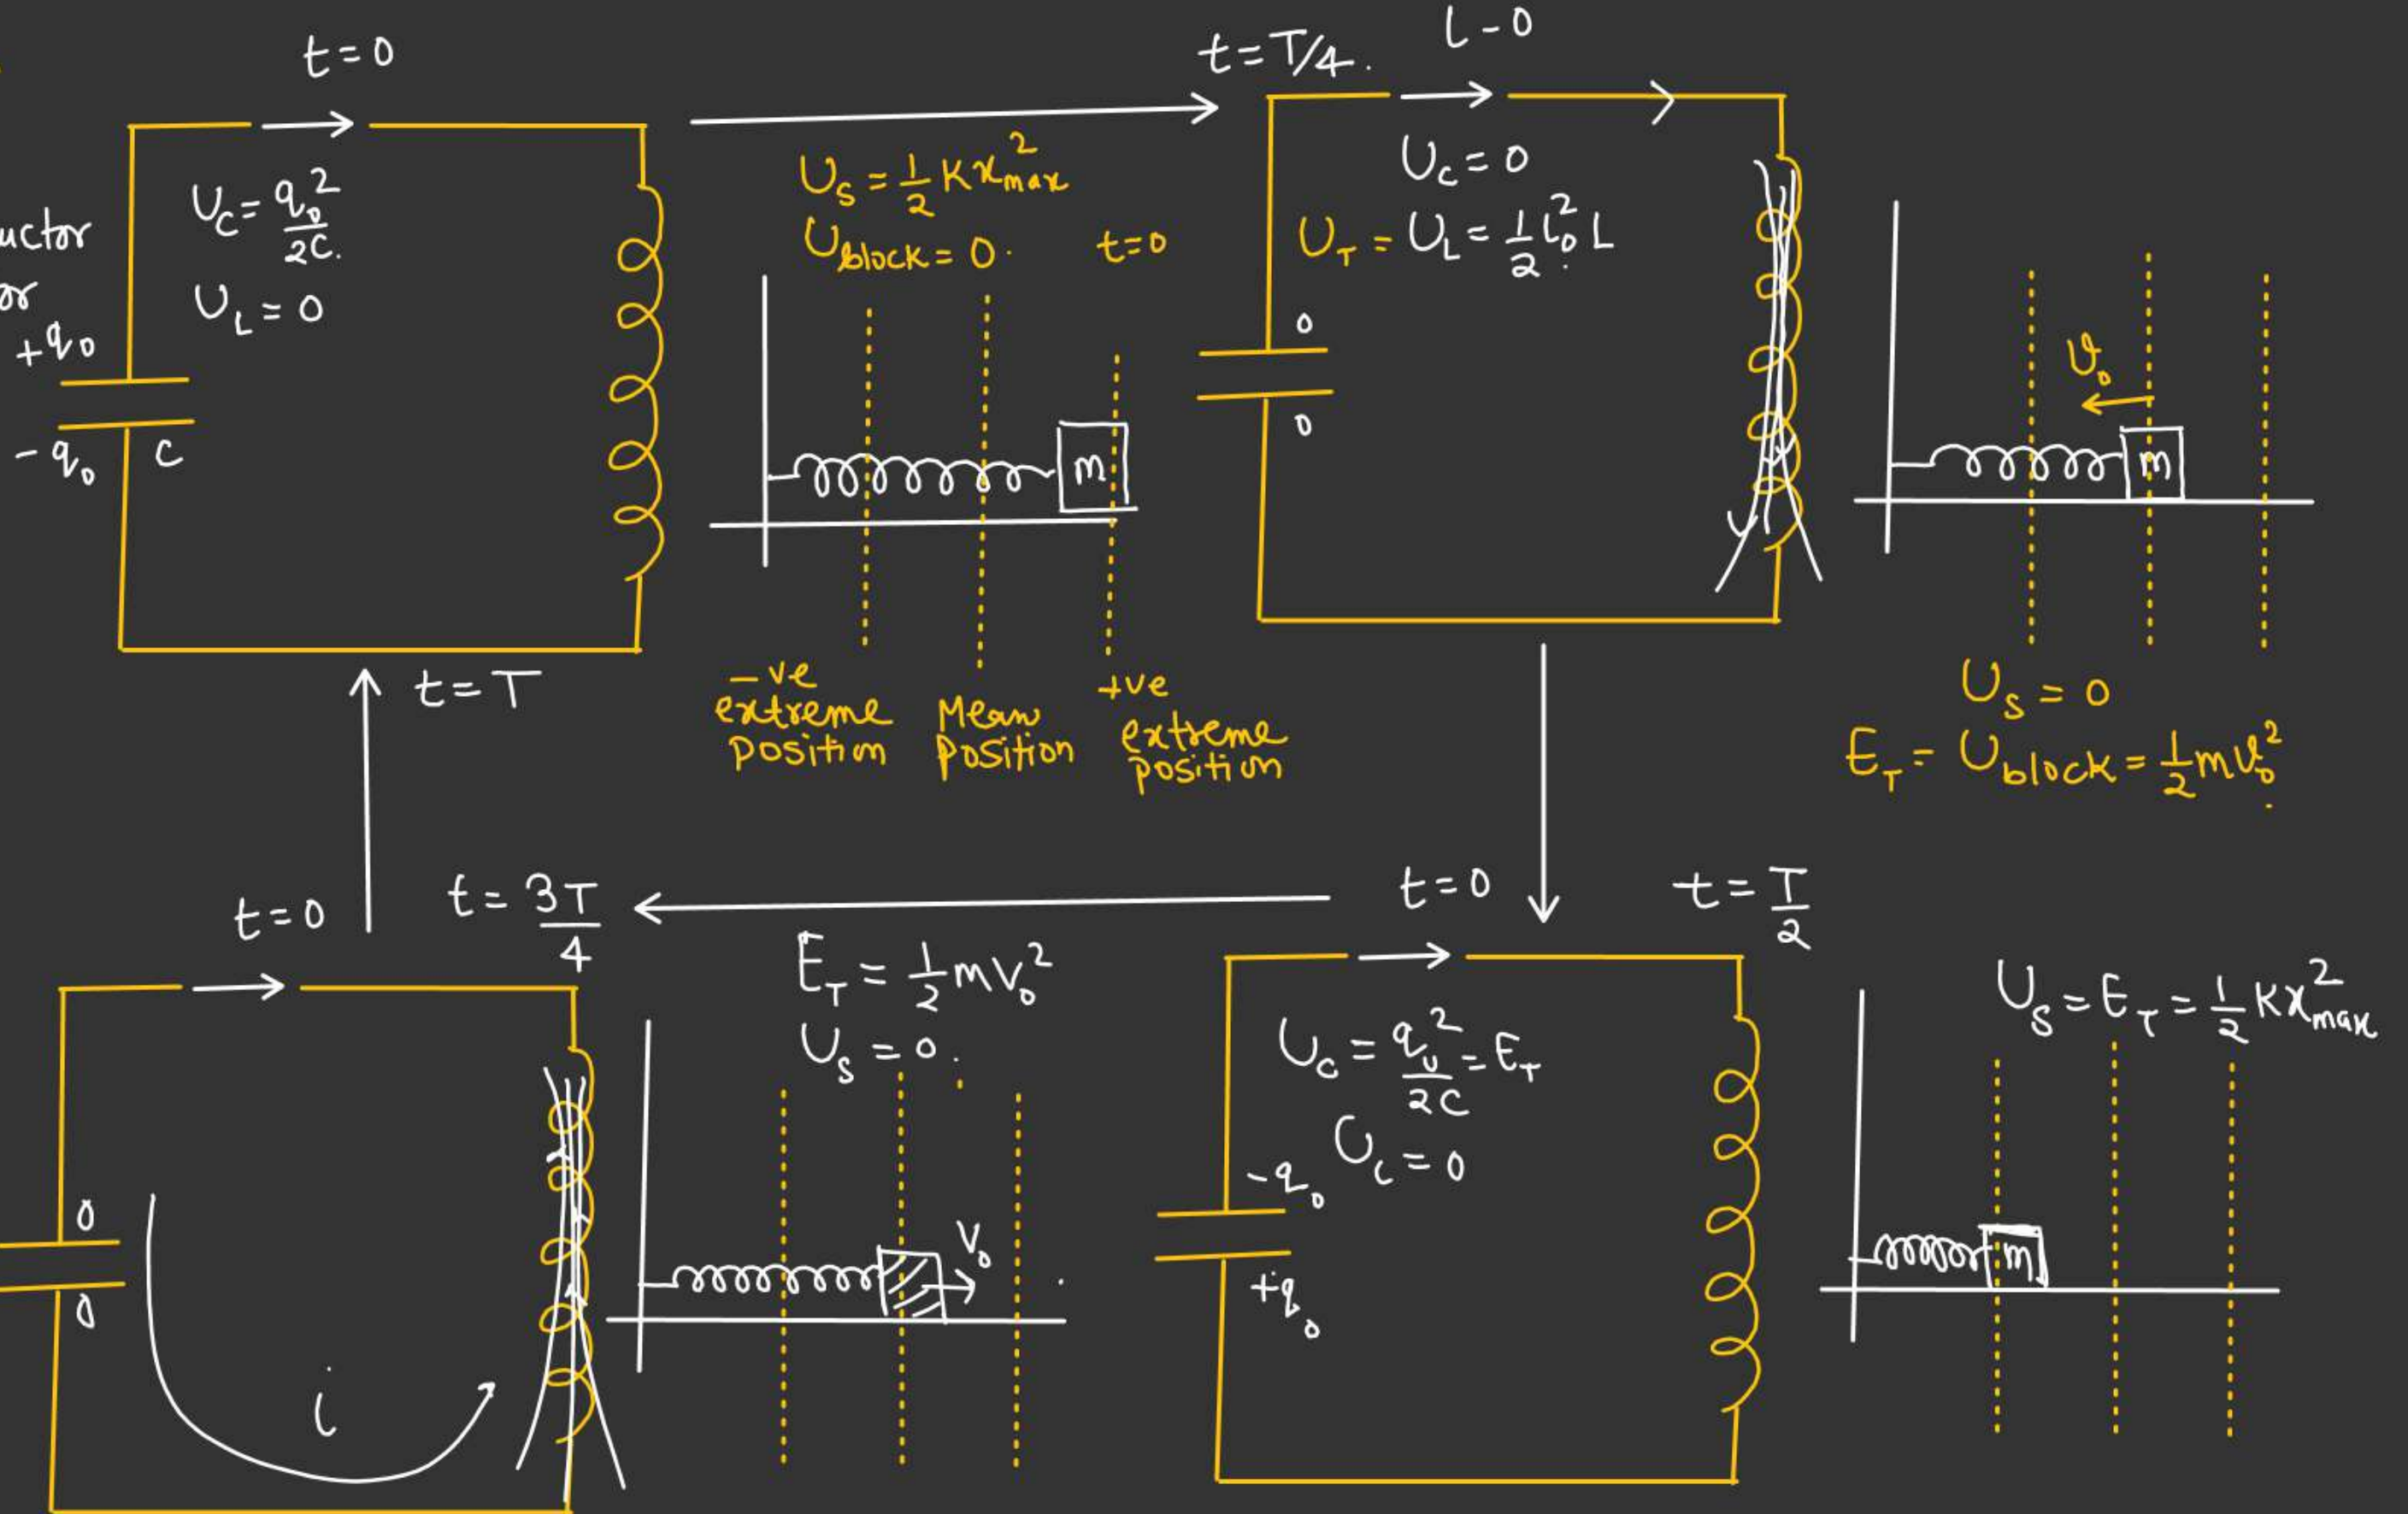 t=0
U_C = q_0^2/2C.
U_L = 0
uctor
or
+q_0
-q_0 C
U_S = 1/2 K x_max^2
U_block = 0. t=0
m
-ve extreme position
Mean position
+ve extreme position
t=T/4.
U_C = 0
U_T = U_L = 1/2 i_0^2 L
0
0
v_0
m
U_S = 0
E_T = U_block = 1/2 m v_0^2
t=T
t=0
t= 3T/4
0
0
i
E_T = 1/2 m v_0^2
U_S = 0.
V_0
t=0
t = T/2
= E_T
2C
= 0
-q_0
+q_0
U_S = E_T = 1/2 K x_max^2
m